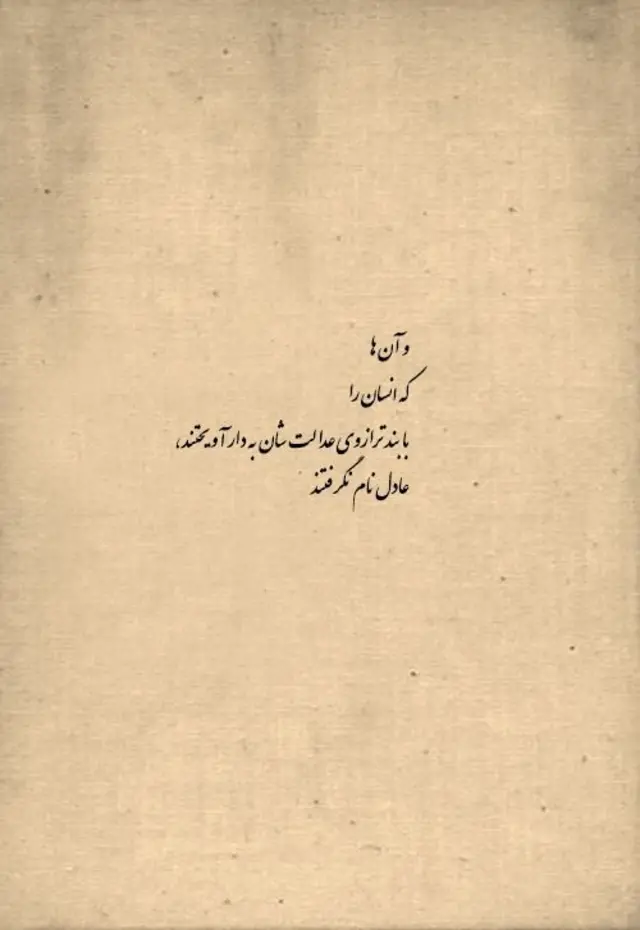 و آن ها
که انسان را
با بند ترازوی عدالت شان به دار آویختند،
عادل نام گرفتند